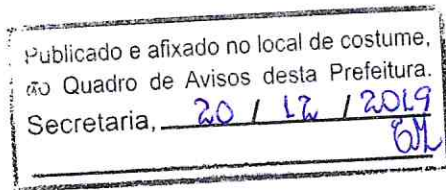 Publicado e afixado no local de costume,
no Quadro de Avisos desta Prefeitura.
Secretaria, 20 / 12 / 2019